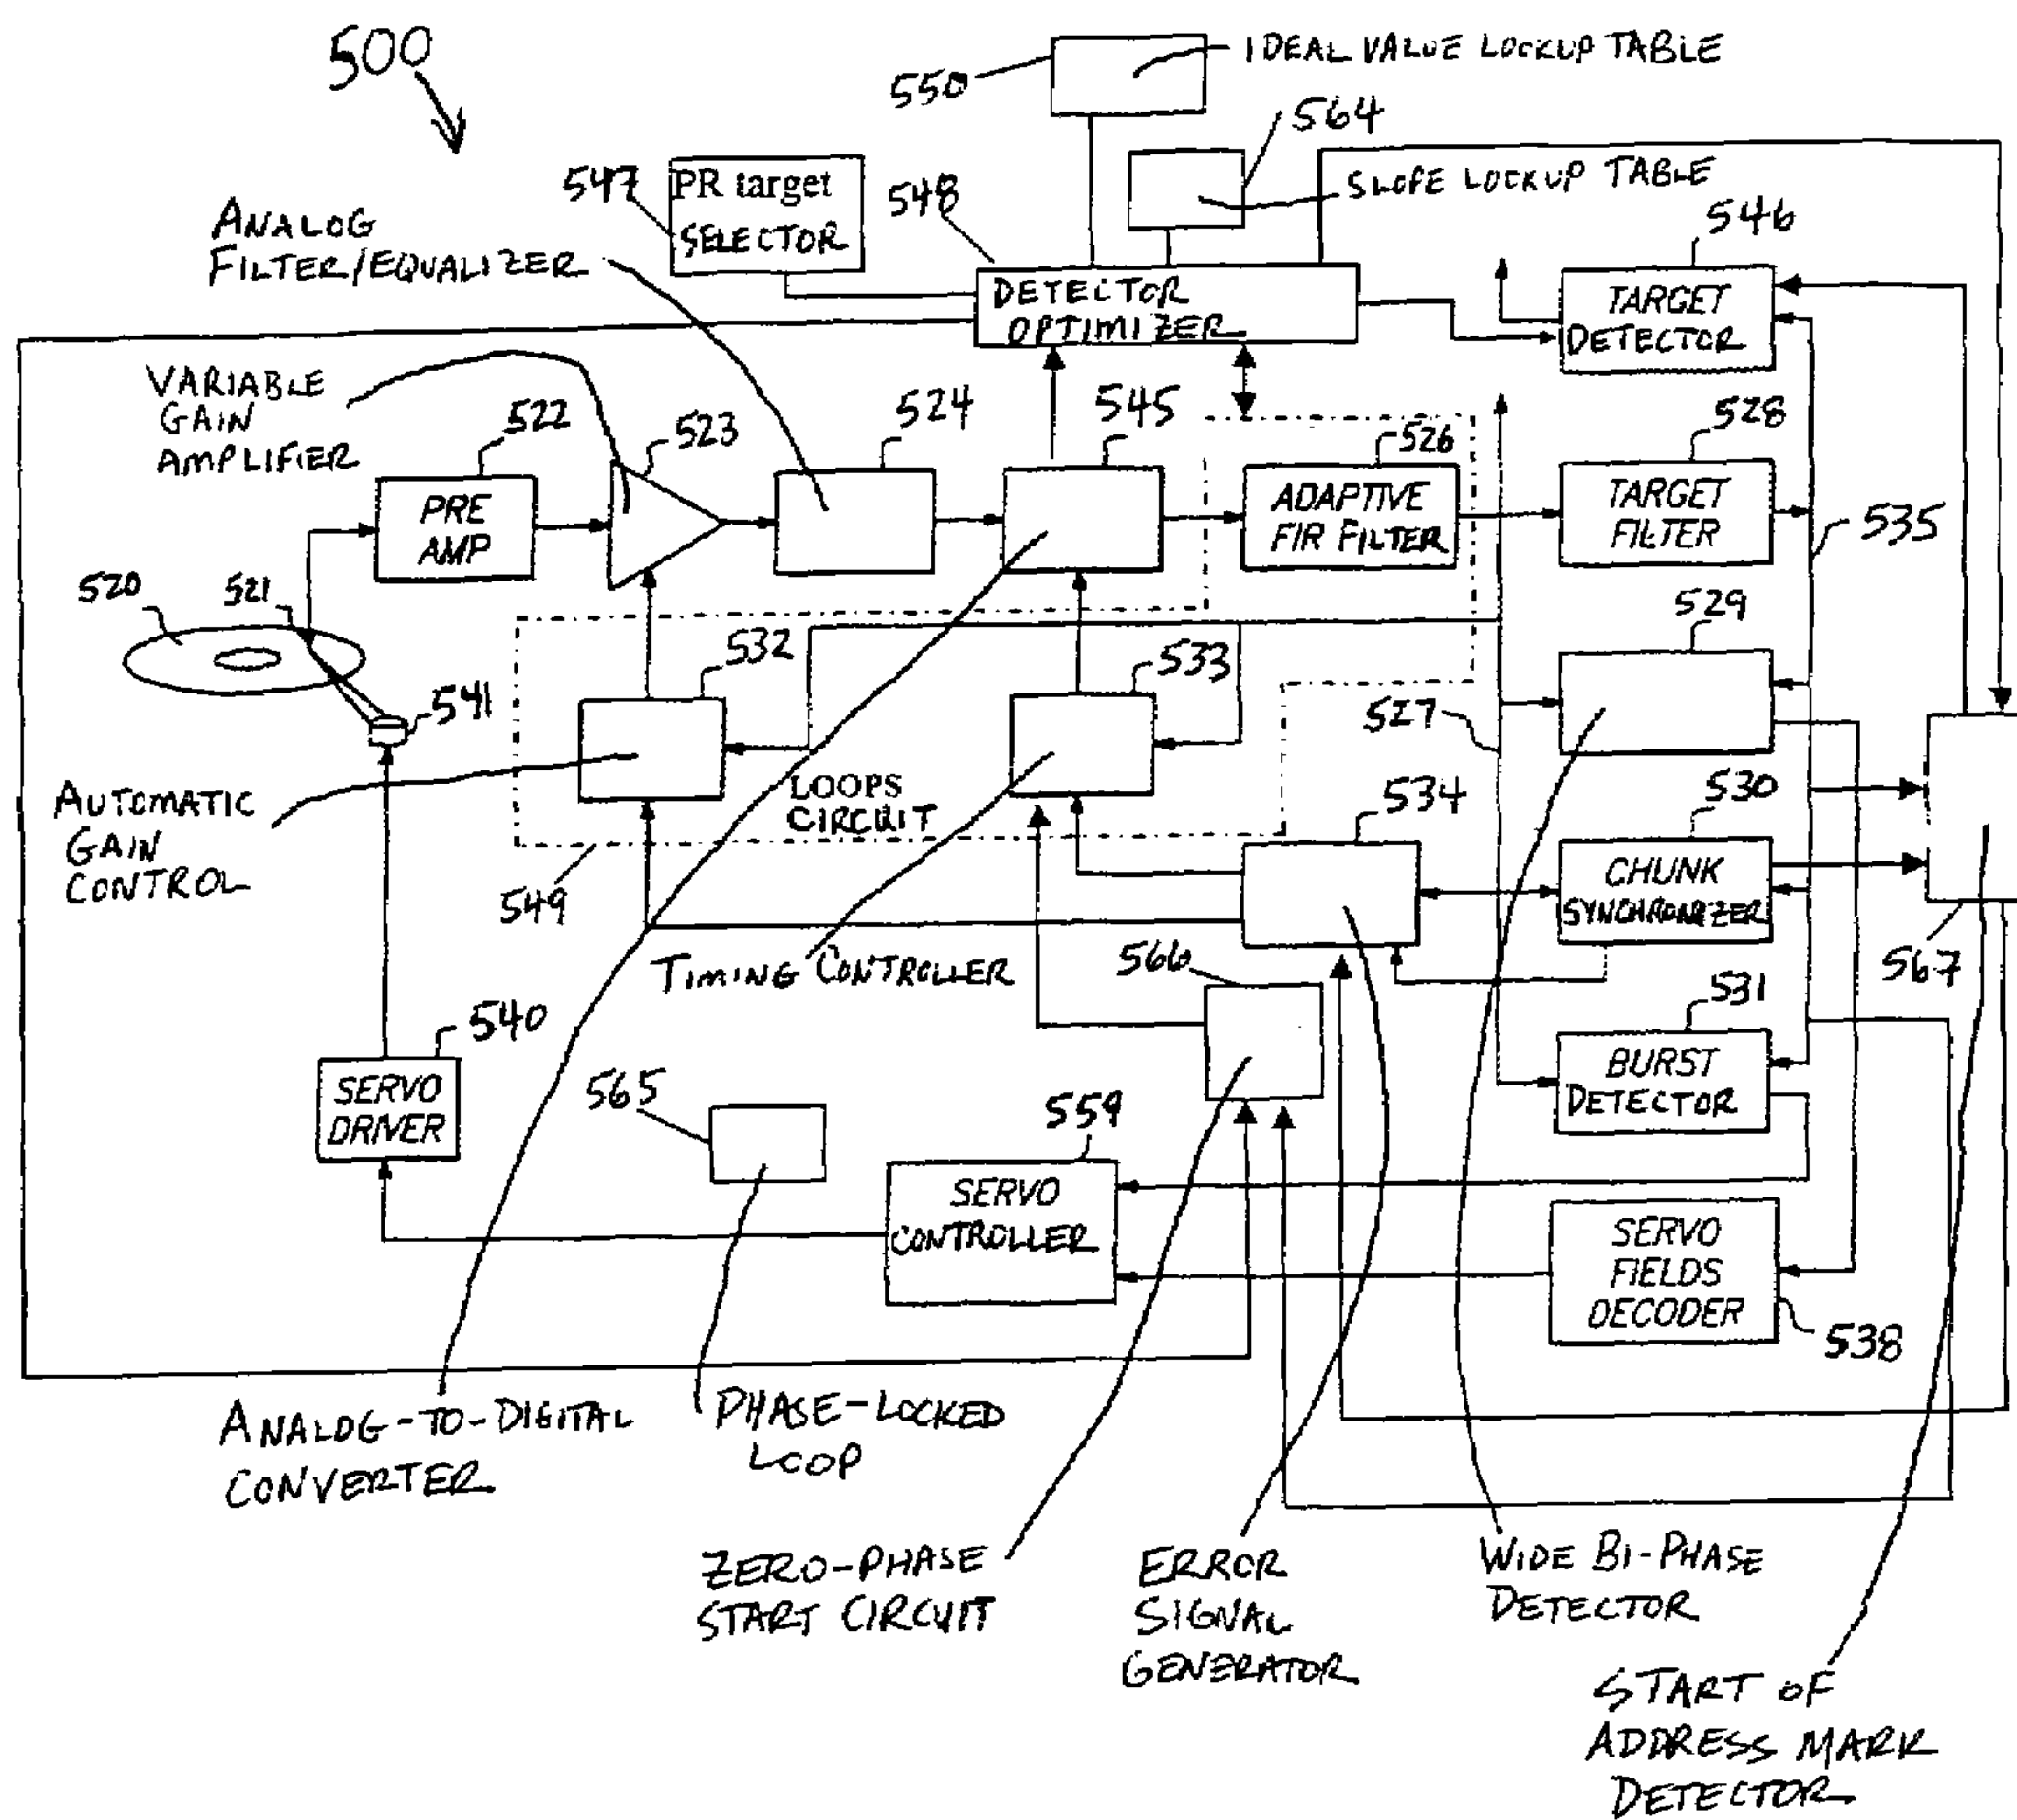 500
550
IDEAL VALUE LOCKUP TABLE
564
SLOPE LOCKUP TABLE
547
PR target
SELECTOR
548
DETECTOR
OPTIMIZER
546
TARGET
DETECTOR
ANALOG
FILTER/EQUALIZER
VARIABLE
GAIN
AMPLIFIER
522
PRE
AMP
523
524
545
526
ADAPTIVE
FIR FILTER
528
TARGET
FILTER
535
520
521
541
532
533
527
529
LOOPS
CIRCUIT
549
AUTOMATIC
GAIN
CONTROL
534
530
CHUNK
SYNCHRONIZER
567
TIMING CONTROLLER
566
531
BURST
DETECTOR
540
SERVO
DRIVER
565
559
SERVO
CONTROLLER
SERVO
FIELDS
DECODER
538
ANALOG-TO-DIGITAL
CONVERTER
PHASE-LOCKED
LOOP
ZERO-PHASE
START CIRCUIT
ERROR
SIGNAL
GENERATOR
WIDE BI-PHASE
DETECTOR
START OF
ADDRESS MARK
DETECTOR